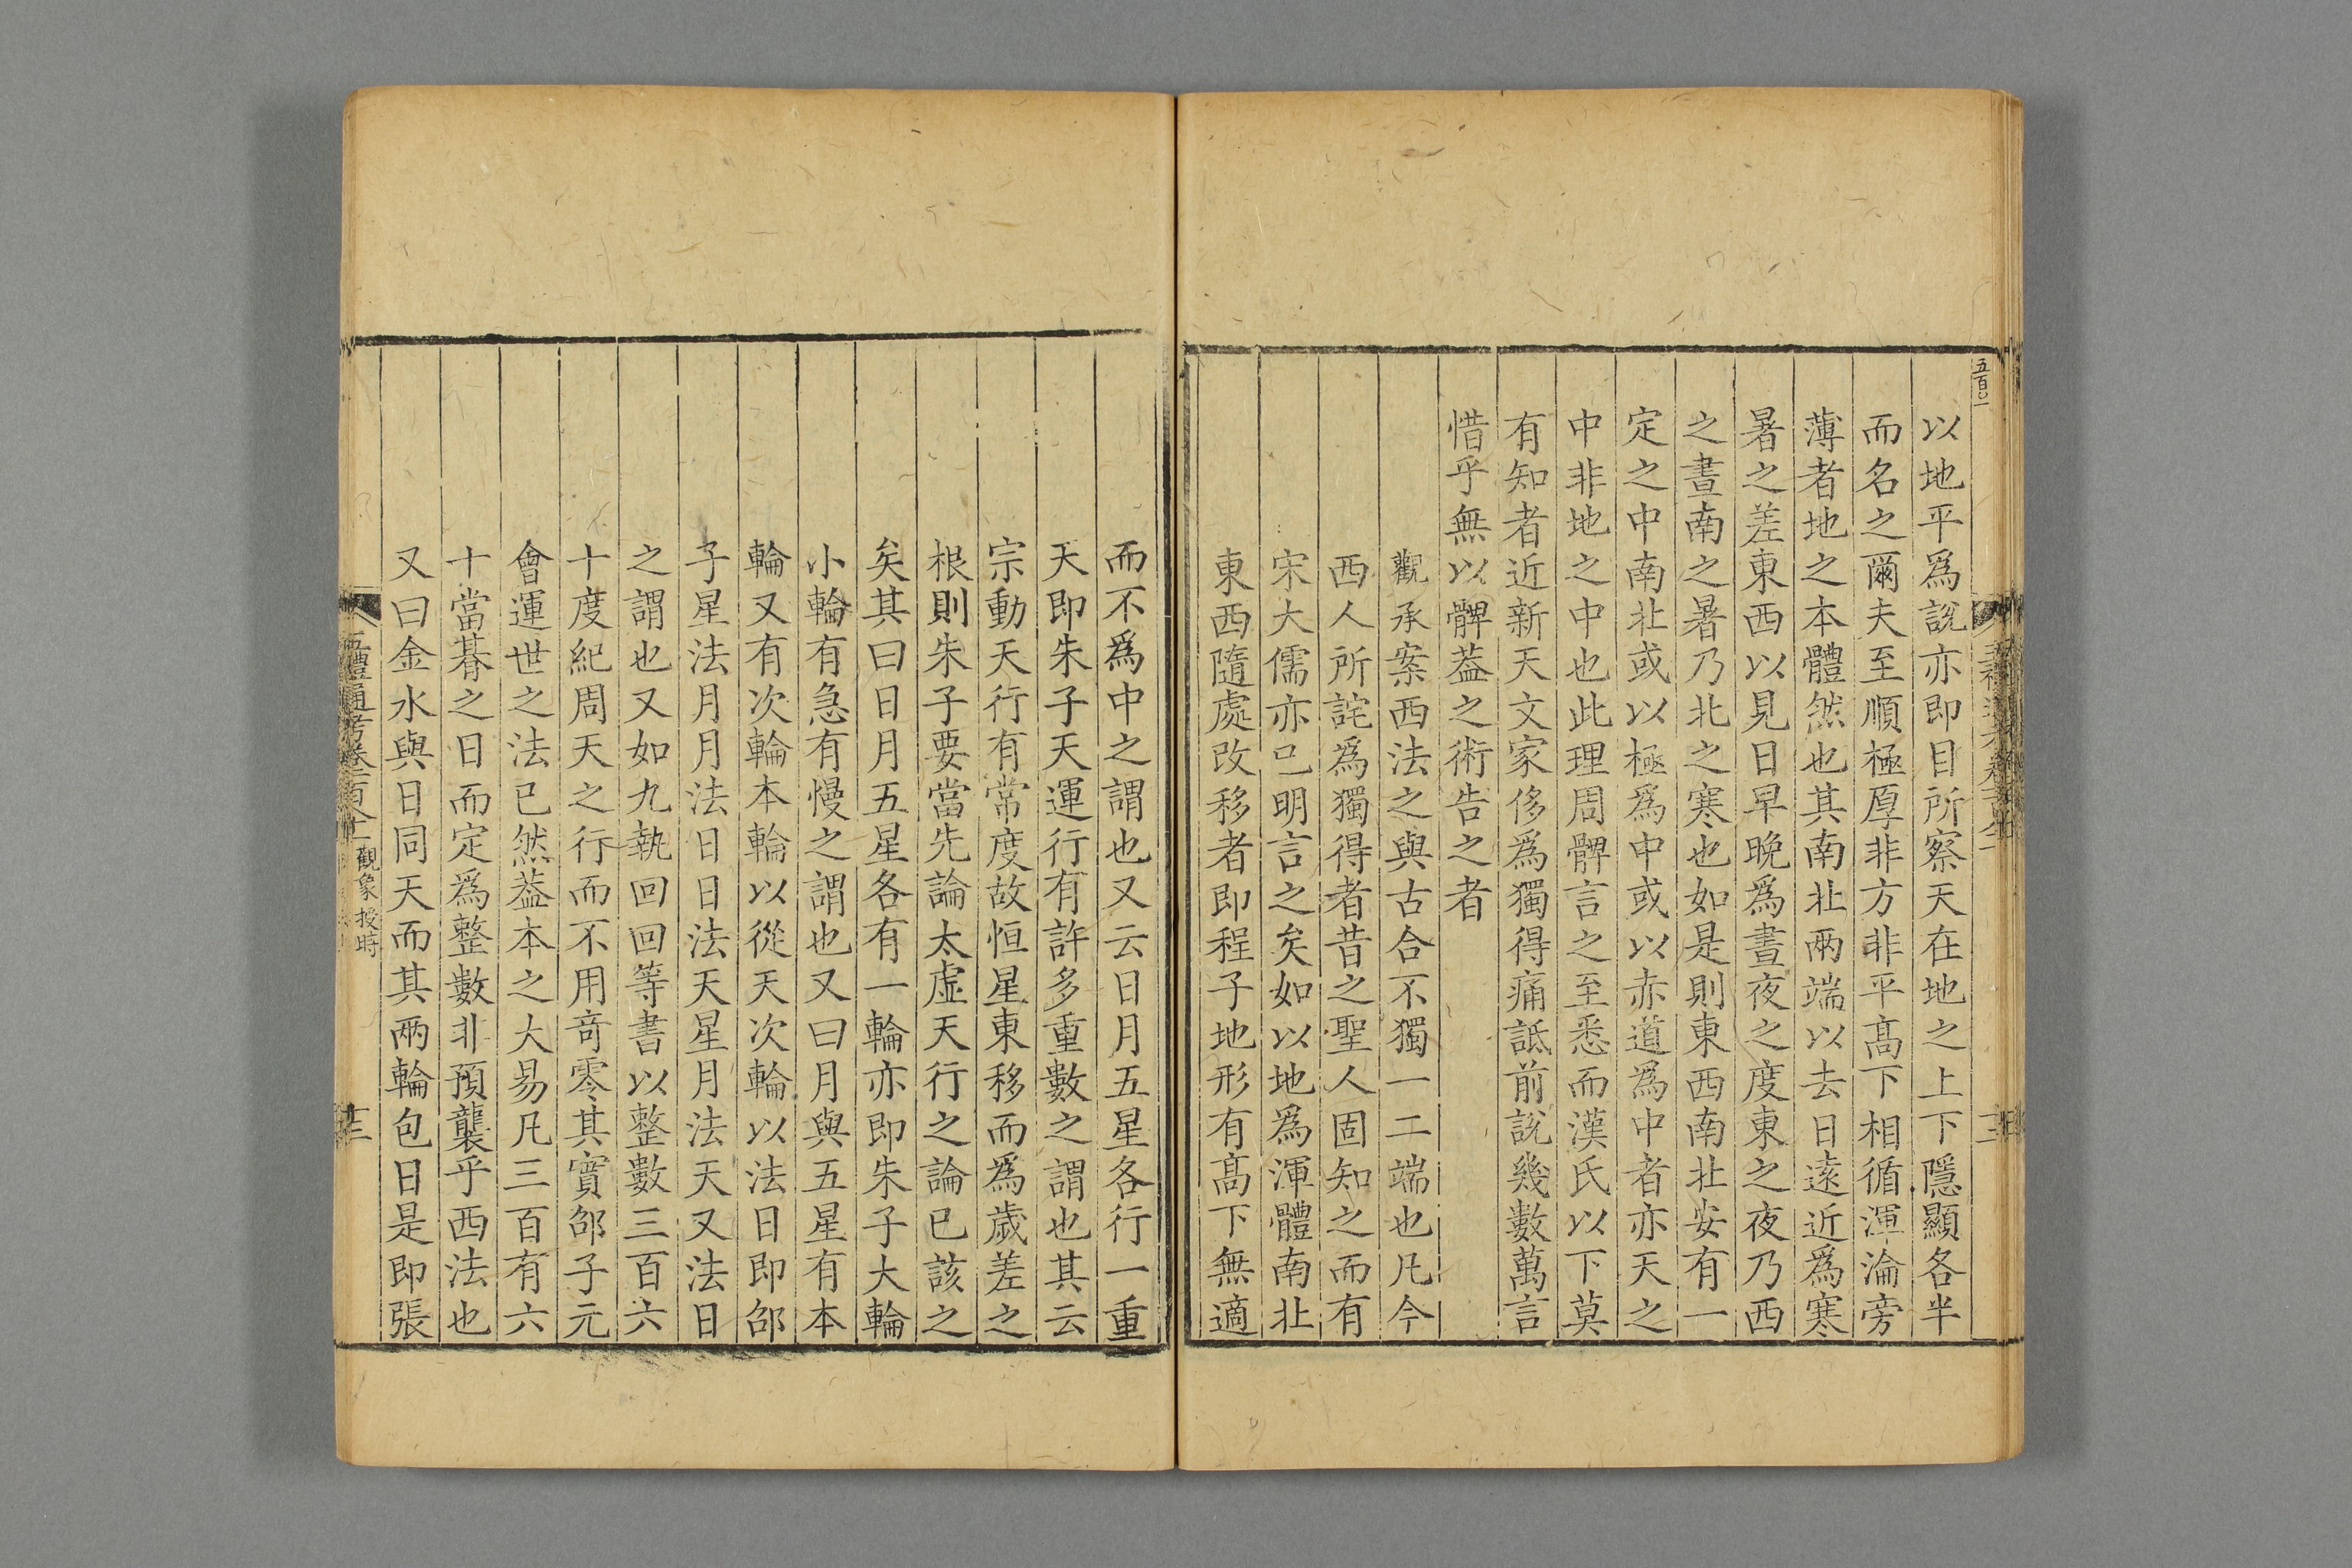 五百〇一
以地平爲說亦即目所察天在地之上下隱顯各半
而名之爾夫至順極厚非方非平髙下相循渾淪旁
薄者地之本體然也其南北兩端以去日逺近爲寒
暑之差東西以見日早晚爲晝夜之度東之夜乃西
之晝南之暑乃北之寒也如是則東西南北安有一
定之中南北或以極爲中或以赤道爲中者亦天之
中非地之中也此理周髀言之至悉而漢氏以下莫
有知者近新天文家侈爲獨得痛詆前說幾數萬言
惜乎無以髀葢之術告之者
觀承案西法之與古合不獨一二端也凡今
西人所詫爲獨得者昔之聖人固知之而有
宋大儒亦已明言之矣如以地爲渾體南北
東西隨處改移者即程子地形有髙下無適
而不爲中之謂也又云日月五星各行一重
天即朱子天運行有許多重數之謂也其云
宗動天行有常度故恒星東移而爲歲差之
根則朱子要當先論太虛天行之論已該之
矣其曰日月五星各有一輪亦即朱子大輪
小輪有急有慢之謂也又曰月與五星有本
輪又有次輪本輪以從天次輪以法日即邵
子星法月月法日日法天星月法天又法日
之謂也又如九執回回等書以整數三百六
十度紀周天之行而不用竒零其實邵子元
會運世之法已然葢本之大易凡三百有六
十當朞之日而定爲整數非預襲乎西法也
又曰金水與日同天而其兩輪包日是即張
五禮通考卷一百八十一 觀象授時
十三